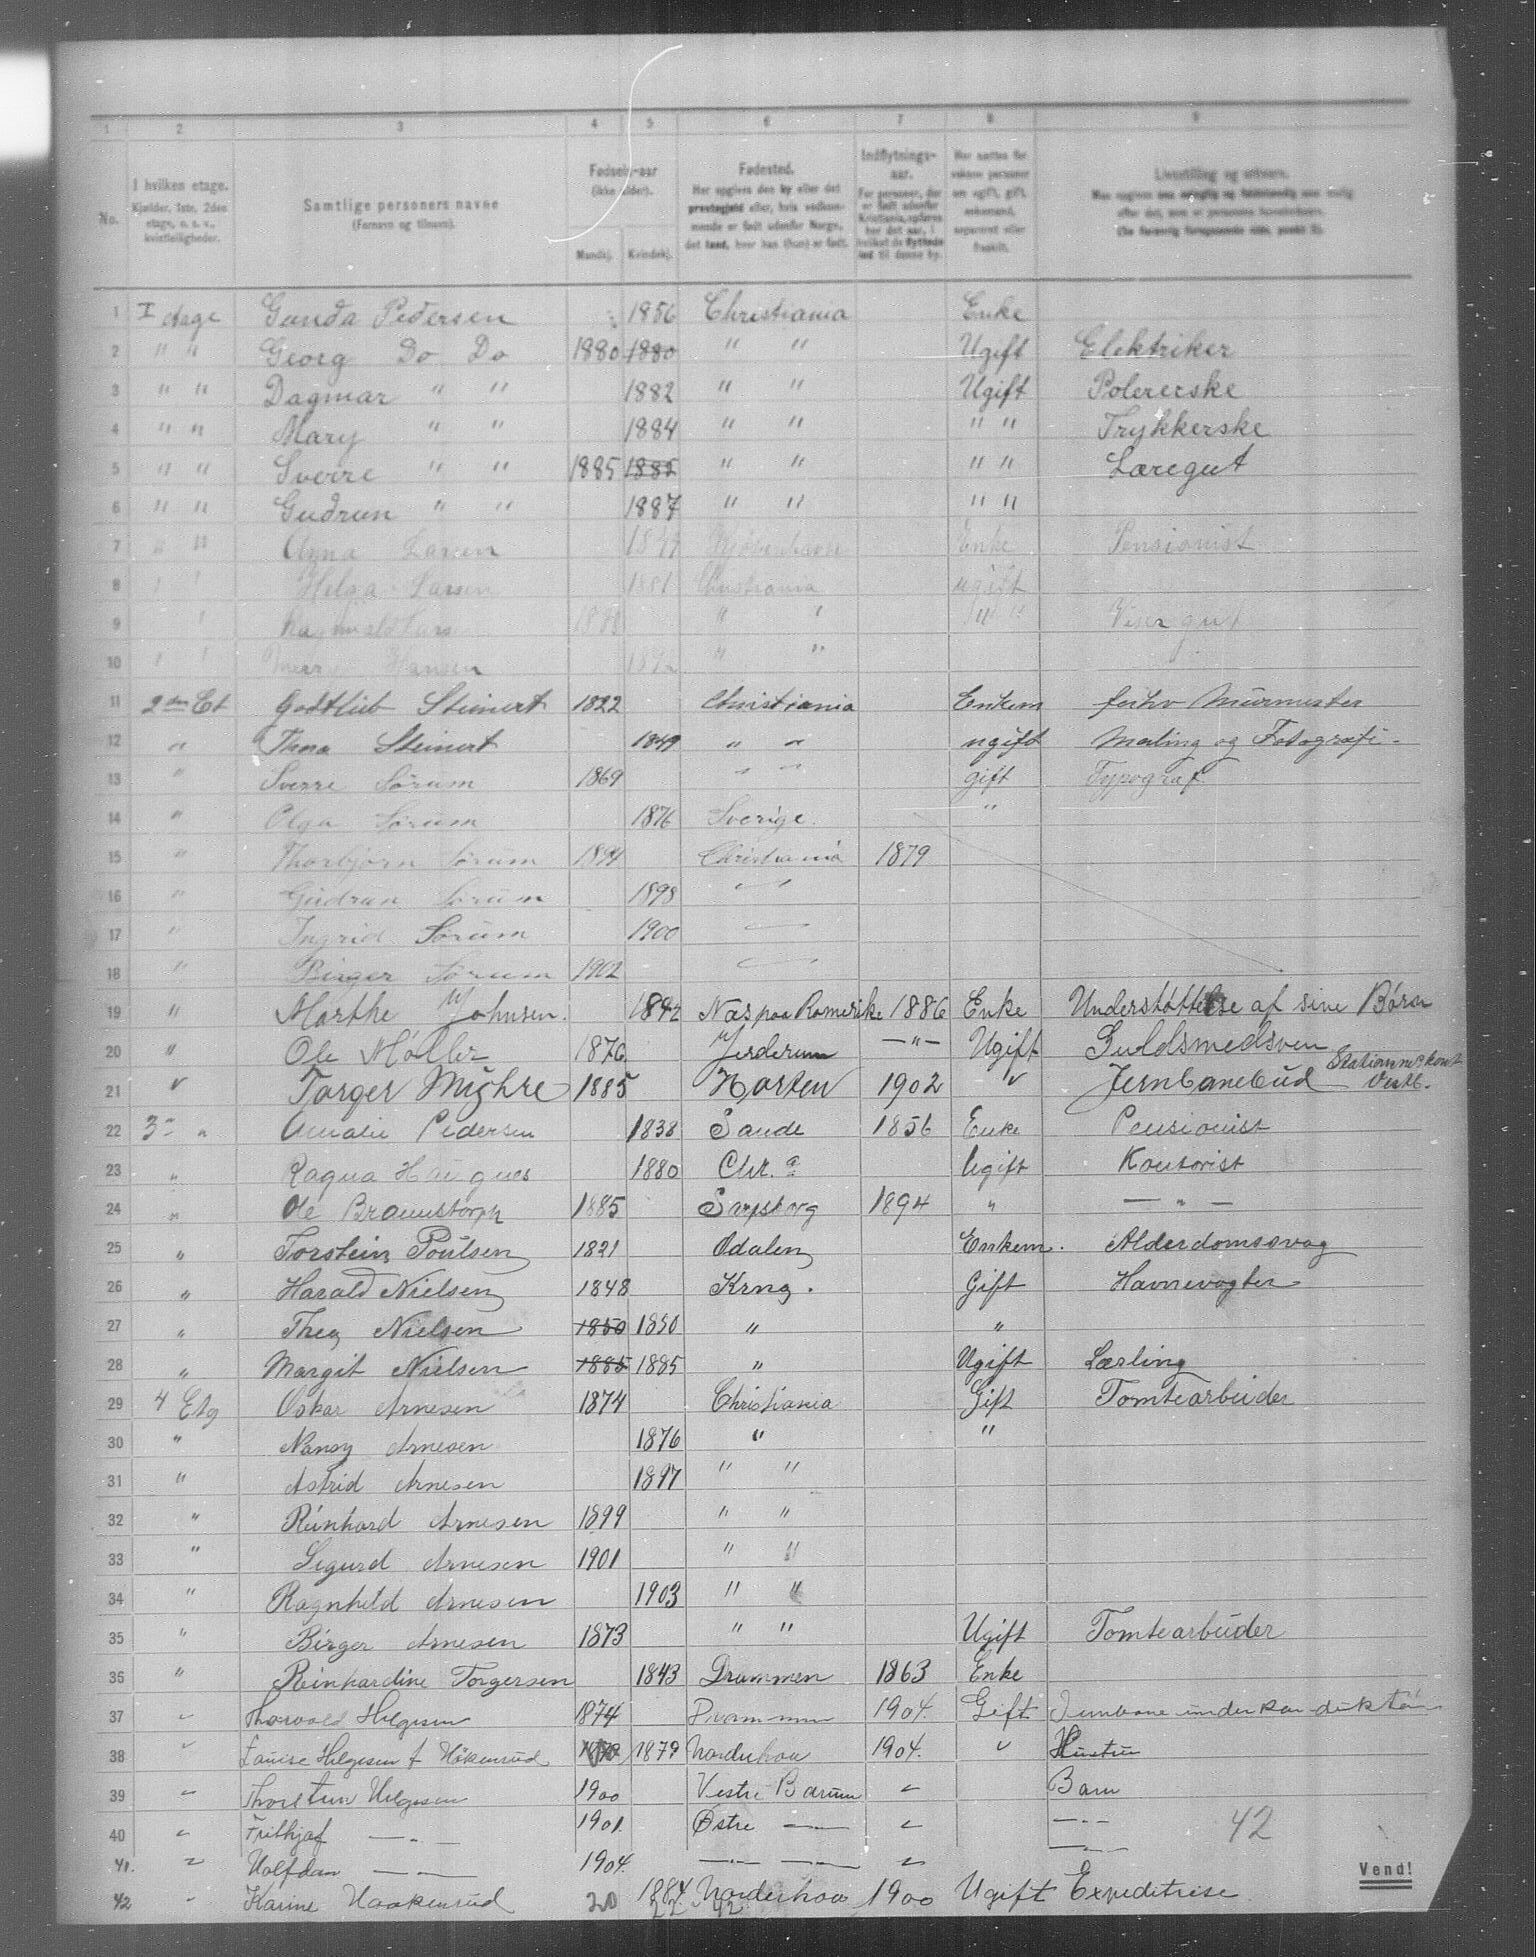 1 2 3 4 5 6 7 8 9
No. I hvilken etage. Kjælder, 1ste, 2den etage, o. s. v., kvistleiligheder. Samtlige personers navne (Fornavn og tilnavn). Fødsels-aar (ikke alder). Mandkj. Kvindekj. Fødested. Her opgives den by eller det præstegjeld eller, hvis vedkommende er født udenfor Norge, det land, hvor han (hun) er født. Indflytnings-aar. For personer, der er født udenfor Kristiania, opføres her det aar, i hvilket de flyttede ind til denne by. Livsstilling og erhverv.
1 I etage Gunda Pedersen 1856 Christiania Enke
2 " " Georg Do Do 1880 1880 " " Ugift Elektriker
3 " " Dagmar " " 1882 " " Ugift Polererske
4 " " Mary " " 1884 " " " " Trykkerske
5 " " Sverre " " 1885 1885 " " " " Læregut
6 " " Gudrun " " 1887 " " " "
7 " " Anna Larsen Kjøbenhavn Enke Pensionist
8 " " Helga Larsen 1881 Christiania ugift
9 " " " " " Visergut
10 " " Hansen " "
11 2den Et Godtlieb Steinert 1822 Christiania Enkem forhv Murmester
12 " Thea Steinert 1849 " " ugift Maling og Fotografi
13 " Sverre Sørum 1869 " " gift Typograf
14 " Olga Sørum 1876 Sverige. "
15 " Thorbjørn Sørum 1894 Christiania 1879
16 " Gudrun Sørum 1898 "
17 " Ingrid Sørum 1900 "
18 " Birger Sørum 1902 "
19 " Marthe Johnsen. 1842 Næs paa Romerike 1886 Enke Understøttelse af sine Børn
20 " Ole Møller 1876 Jerderum —"— Ugift Guldsmedsven
21 " Torger Myhre 1885 Horten 1902 " Jernbanebud
22 3 " Amalie Pedersen 1838 Sande 1856 Enke Pensionist
23 " Ragna Haugnes 1880 Chr.a Ugift Kontorist
24 " Ole Braunstorph 1885 Sarpsborg 1894 " — " —
25 " Torstein Poulsen 1821 Odalen Enkem. Alderdomssvag
26 " Harald Nielsen 1848 Krng. Gift Havnevogter
27 " Thea Nielsen 1850 1850 " "
28 " Margit Nielsen 1885 1885 " Ugift Lærling
29 4 Etg Oskar Arnesen 1874 Christiania Gift Tomtearbeider
30 " Nansy Arnesen 1876 " "
31 " Astrid Arnesen 1897 " "
32 " Reinhard Arnesen 1899 " "
33 " Sigurd Arnesen 1901 " "
34 " Ragnhild Arnesen 1903 " "
35 " Birger Arnesen 1873 " " Ugift Tomtearbeider
36 " Reinhardine Torgersen 1843 Drammen 1863 Enke
37 " Thorvald Helgesen 1874 Drammen 1904. Gift Jernbane underkonduktør
38 " Louise Helgesen f Håkenrud 1879 Norderhov 1904. " Hustru
39 " Thorstein Helgesen 1900 Vestre Bærum " Barn
40 " Frithjof — " — 1901. Østre —— " — " — 42
41. " Halfdan — " — 1904. —— —— " — " —
Vend!
42 " Karine Haakenrud 20 1884 Norderhov 1900 Ugift Expeditrise
22 42